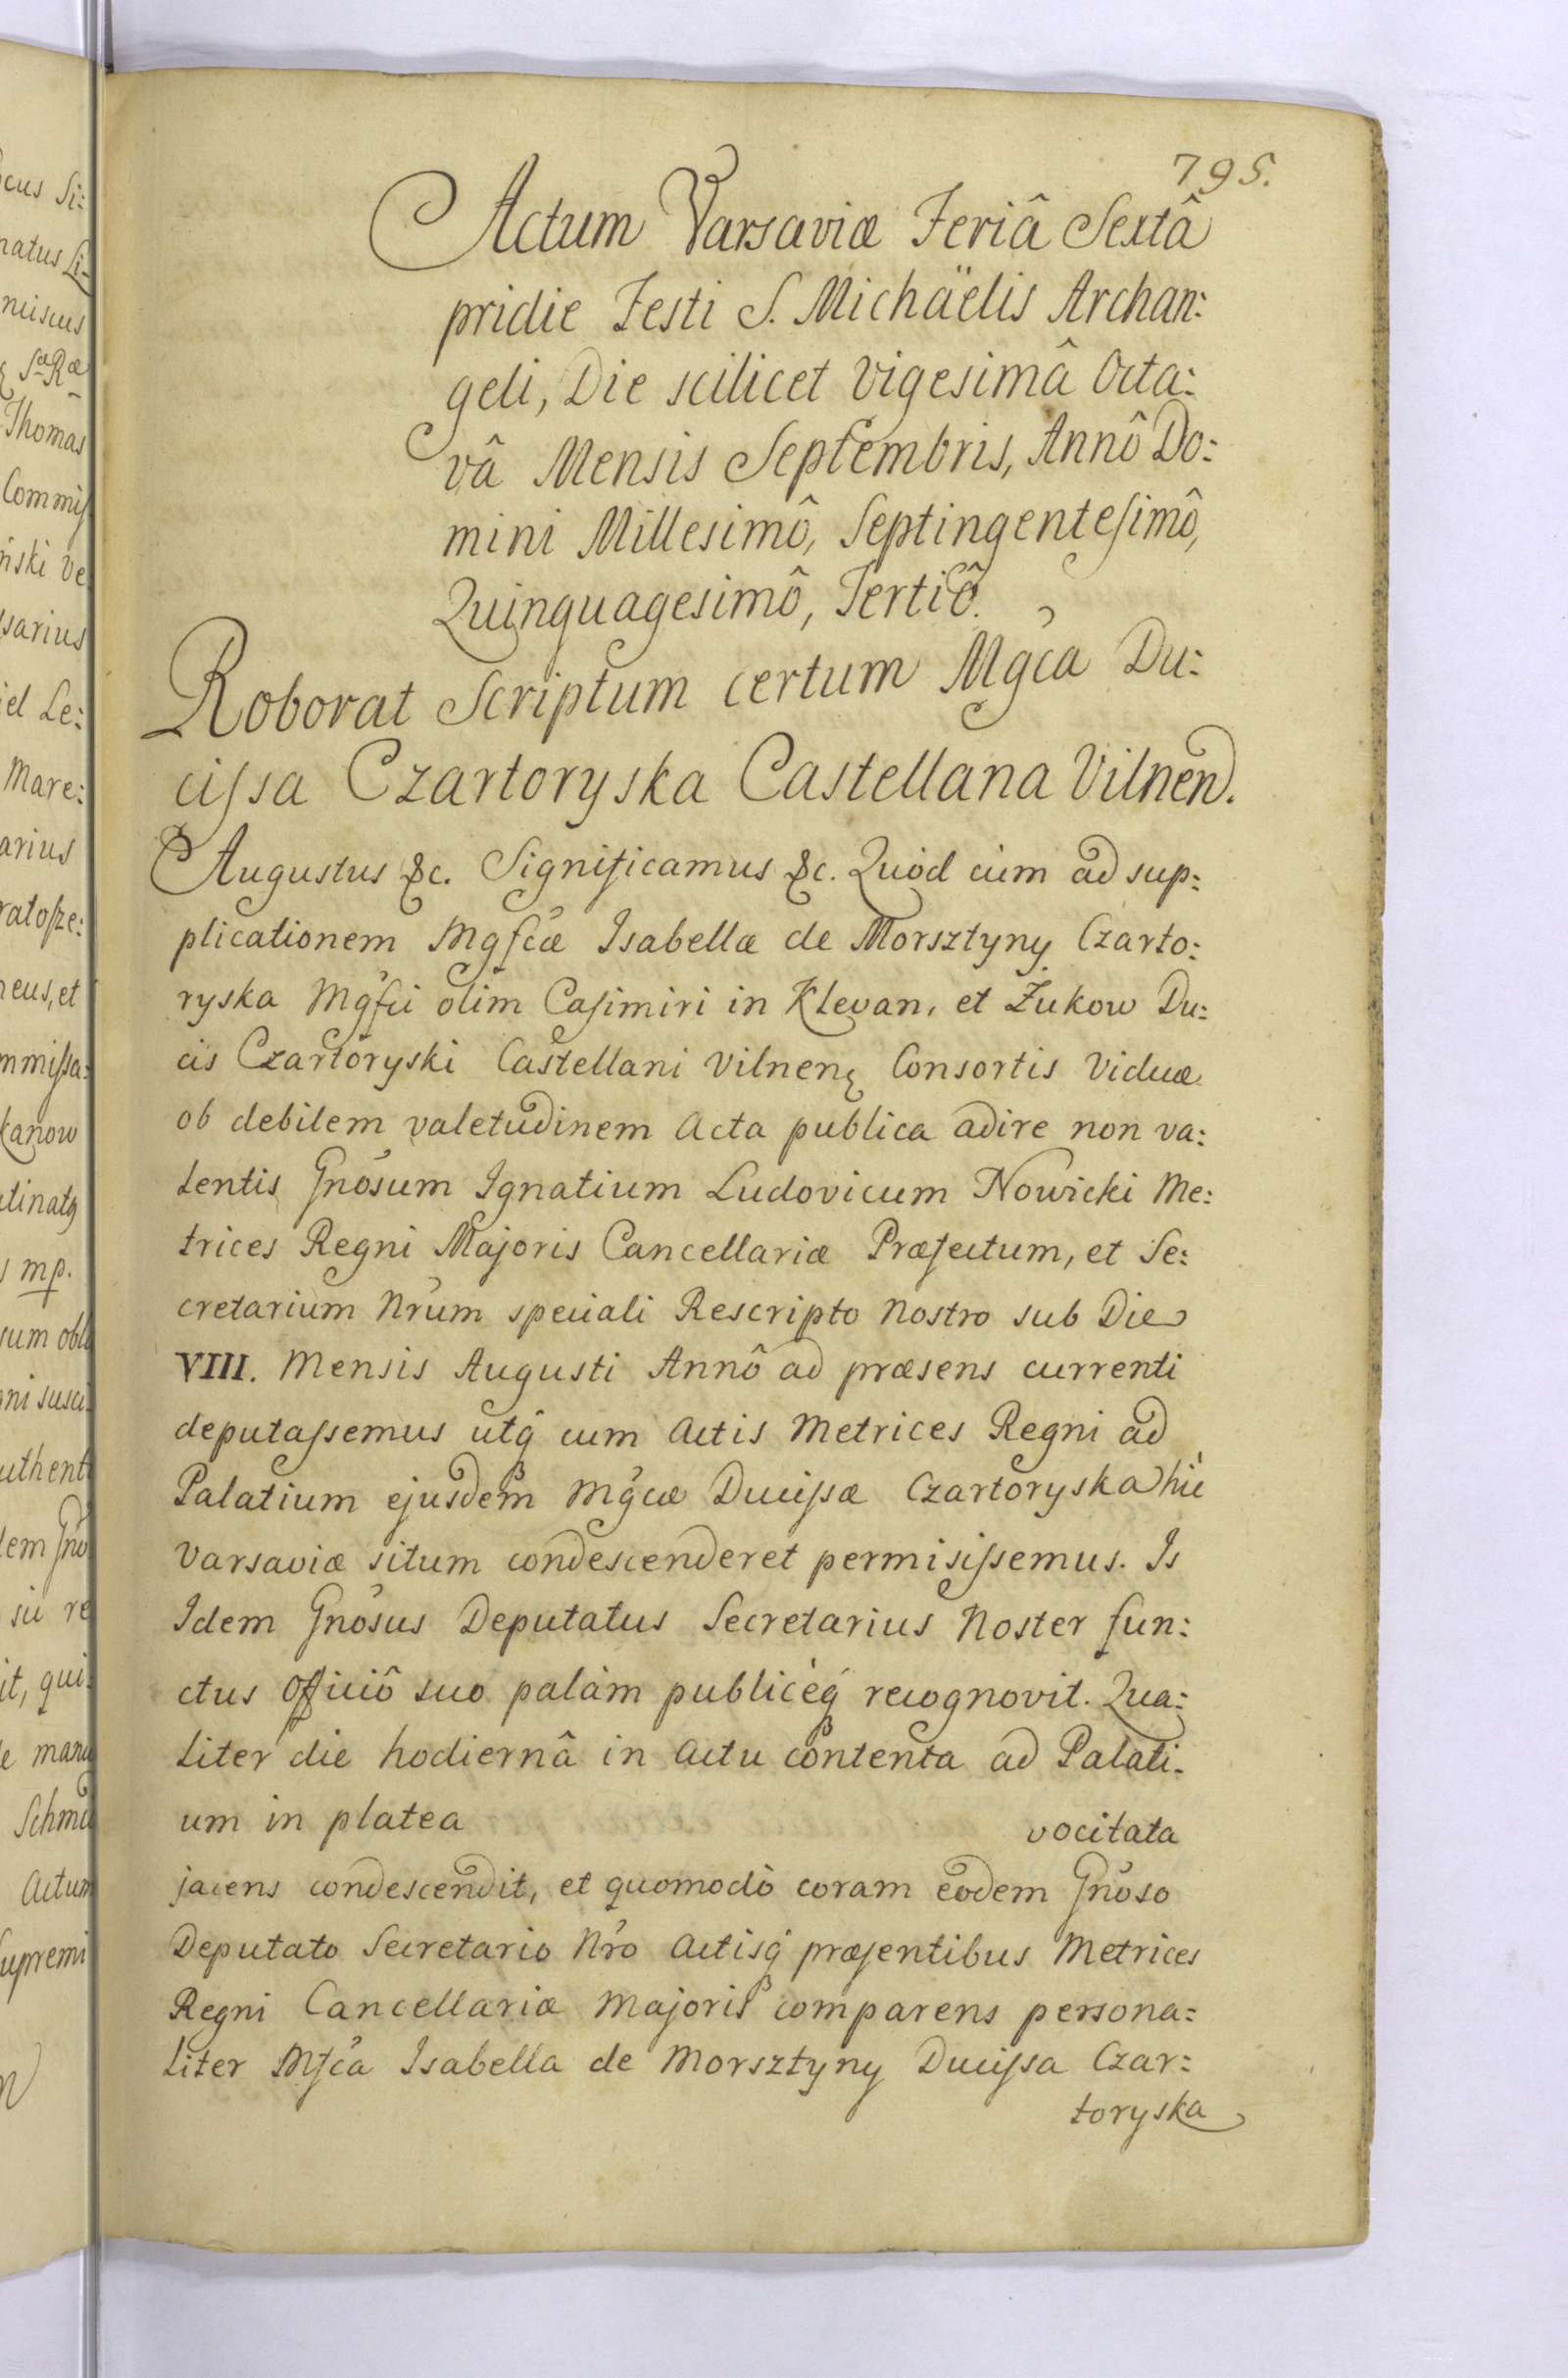 795.
Actum Varsaviæ Feriâ Sextâ
pridie Festi S. Michäelis Archan:
geli, Die scilicet Vigesimâ Octa:
vâ Mensis Septembris, Annô Do:
mini Millesimô, Septingentesimô,
Quinquagesimô, Tertiô.
Roborat Scriptum certum Mgca Du:
cissa Czartoryska Castellana Vilnen.
Augustus &c. Significamus &c. Quòd cùm ad sup:
plicationem Mgfcæ Isabellæ de Morsztyny Czarto:
ryska Mgfci olim Casimiri in Klevan, et Żukow Du:
cis Czartoryski Castellani Vilnen Consortis Viduæ
ob debilem valetudinem Acta publica adire non va:
lentis Gnosum Ignatium Ludovicum Nowicki Me:
trices Regni Majoris Cancellariæ Præfectum, et Se:
cretarium Nrum speciali Rescripto Nostro sub Die
VIII. Mensis Augusti Annô ad præsens currenti
deputassemus utq̃ cum Actis Metrices Regni ad
Palatium ejusdem Mgcæ Ducissæ Czartoryska hìc
Varsaviæ situm condescenderet permisissemus. Is
Idem Gnosus Deputatus Secretarius Noster fun:
ctus Officiô suo palàm publicèq̃ recognovit. Qua:
liter die hodiernâ in Actu contenta ad Palati:
um in platea vocitata
jacens condescendit, et quomodò coram eodem Gnoso
Deputato Secretario Nro Actisq̃ præsentibus Metrices
Regni Cancellariæ Majoris comparens persona:
liter Mfca Isabella de Morsztyny Ducissa Czar:
toryska
cus Si:
natus Li-
niscus
Sæ Ræ
Thomas
Commis
ński Ve
sarius
iel Le:
Mare:
arius
ratosze:
neus, et
mmissa:
kanow
tinatq
s mp.
sum obla
ni susci:
uthent
dem Gno
sii re
it, qui:
e manu
Schmid
Actum
Supremi